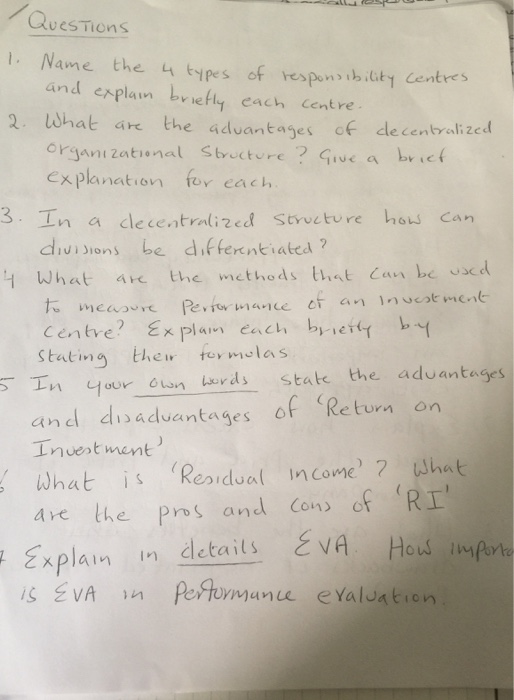 Questions
1. Name the 4 types of responsibility centres
and explain briefly each centre.
2. What are the advantages of decentralized
organizational structure? Give a brief
explanation for each.
3. In a decentralized structure how can
divisions be differentiated?
4 What are the methods that can be used
to measure Performance of an Investment
Centre? Explain each briefly by
stating their formulas
5 In your own words state the advantages
and disadvantages of 'Return on
Investment'
What is 'Residual income'? What
are the pros and cons of 'RI'
7 Explain in details EVA. How importa
is EVA in Performance evaluation.